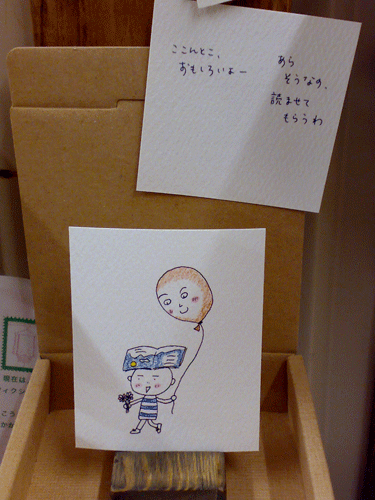 ここんとこ、
おもしろいよー
あら
そうなの、
読ませて
もらうわ
現在は